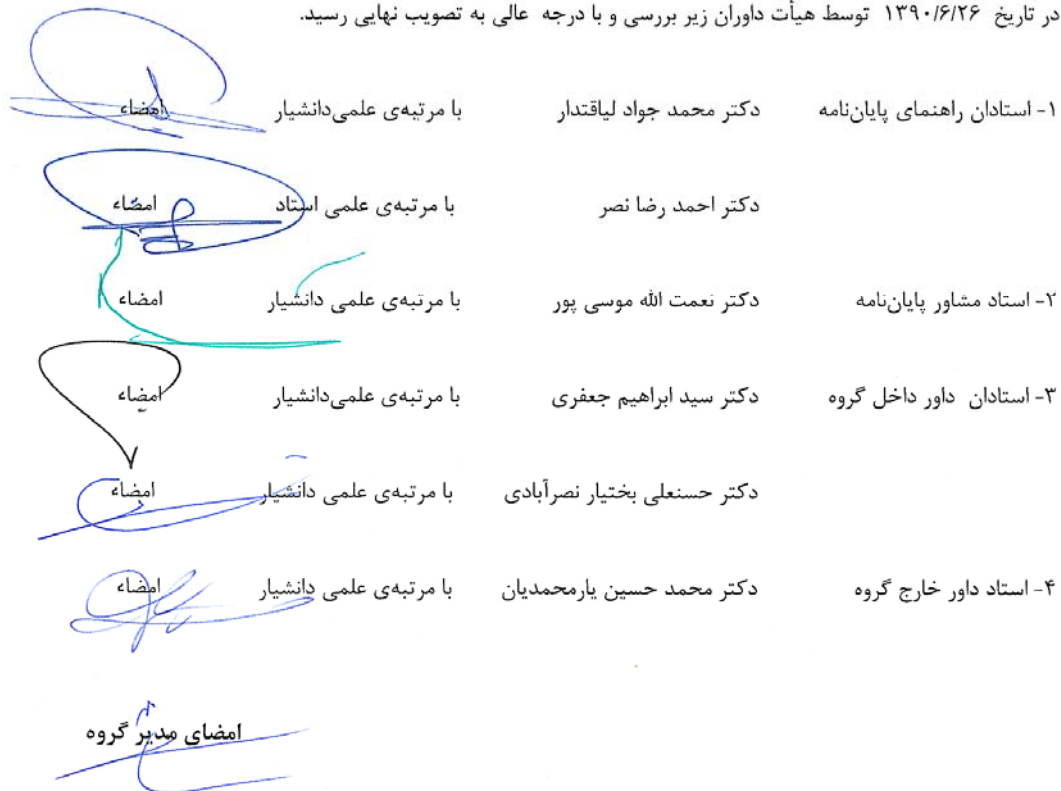 در تاریخ ۱۳۹۰/۶/۲۶ توسط هیأت داوران زیر بررسی و با درجه عالی به تصویب نهایی رسید.
۱- استادان راهنمای پایان‌نامه دکتر محمد جواد لیاقتدار با مرتبه‌ی علمی‌دانشیار امضاء
دکتر احمد رضا نصر با مرتبه‌ی علمی استاد امضاء
۲- استاد مشاور پایان‌نامه دکتر نعمت الله موسی پور با مرتبه‌ی علمی دانشیار امضاء
۳- استادان داور داخل گروه دکتر سید ابراهیم جعفری با مرتبه‌ی علمی‌دانشیار امضاء
دکتر حسنعلی بختیار نصرآبادی با مرتبه‌ی علمی دانشیار امضاء
۴- استاد داور خارج گروه دکتر محمد حسین یارمحمدیان با مرتبه‌ی علمی دانشیار امضاء
امضای مدیر گروه